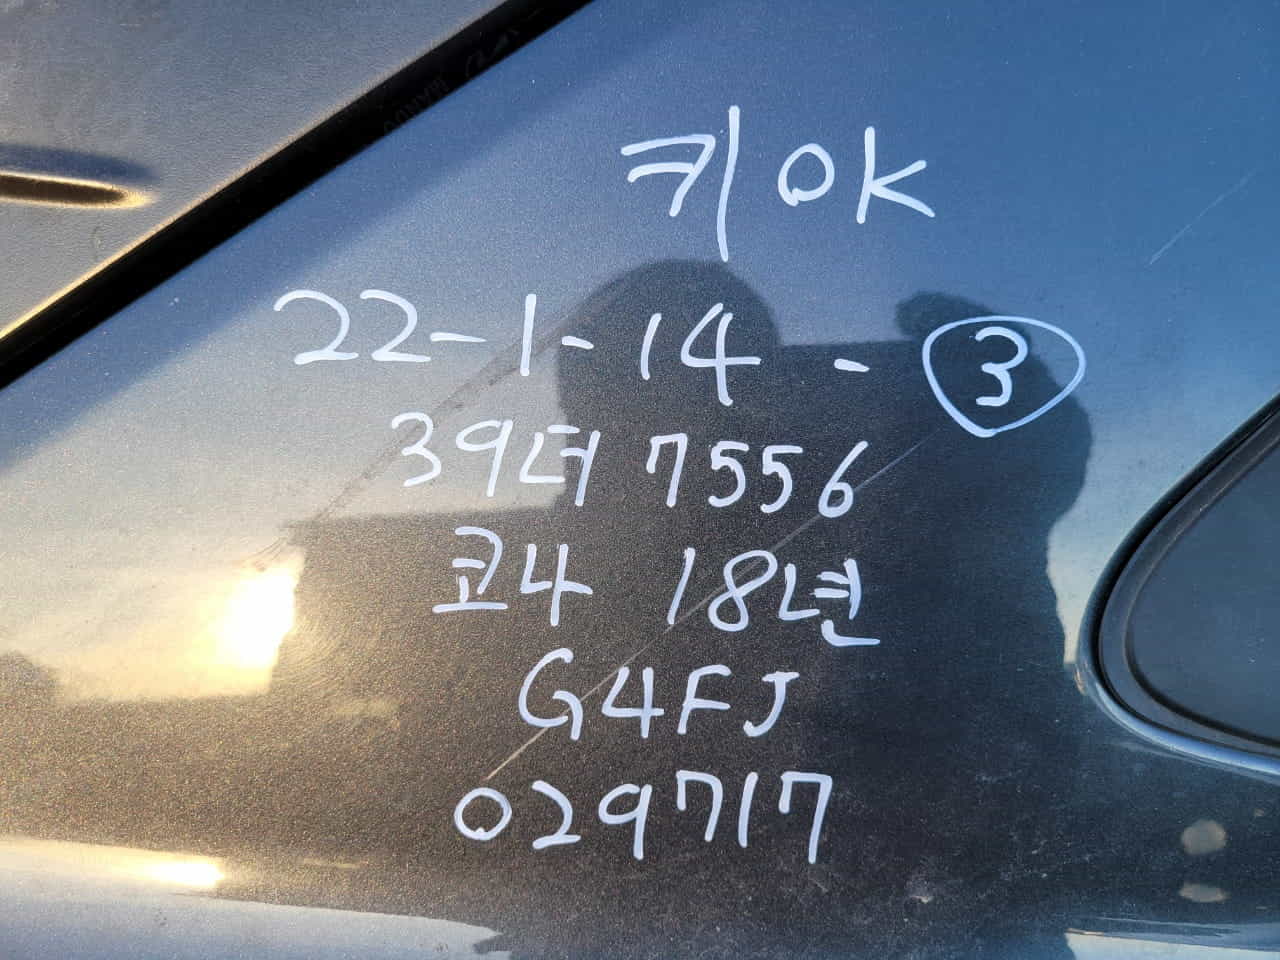 키 OK
22-1-14-③
39더 7556
코나 18년
G4FJ
029717